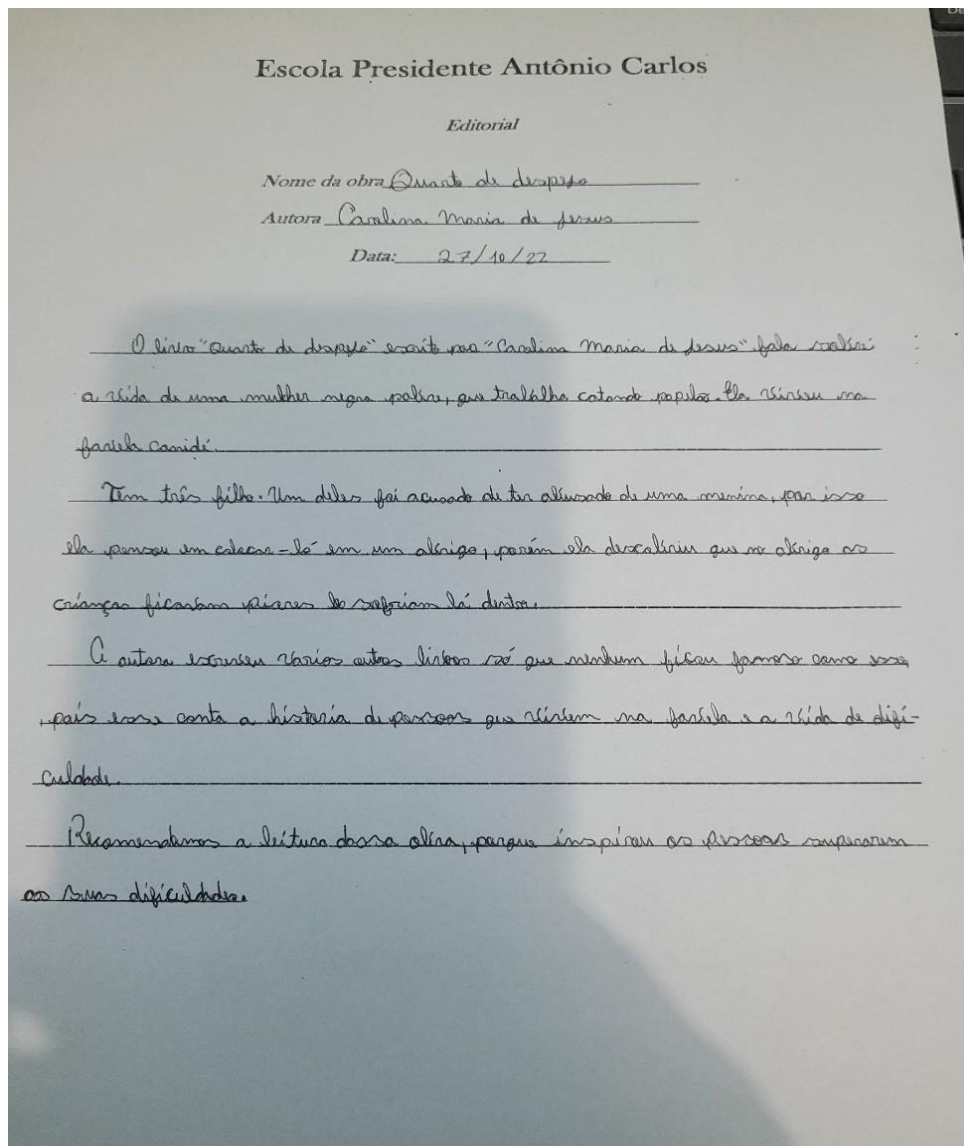 Escola Presidente Antônio Carlos
Editorial
Nome da obra Quarto de despejo
Autora Carolina Maria de Jesus
Data: 27/10/22
O livro "Quarto de despejo" escrito por "Carolina Maria de Jesus" fala sobre
a vida de uma mulher negra pobre, que trabalha catando papelão. Ela viveu na
favela canidé.
Tem três filho. Um deles foi acusado de ter abusado de uma menina, por isso
ela pensou em colocar-ló em um abrigo, porém ela descobriu que no abrigo as
crianças ficavam piores sofriam lá dentro.
A autora escreveu varios outros livros só que nenhum ficou famoso como esse
, pois esse conta a historia de pessoas que vivem na favela e a vida de difi-
culdade.
Recomendamos a leitura dessa obra, porque inspirou as pessoas superarem
as suas dificuldades.